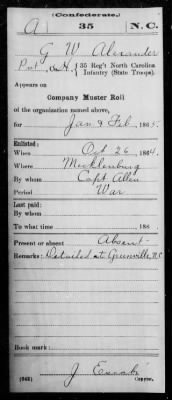 (Confederate.)
A 35 N.C.
G W Alexander
Pvt, Co. H, 35 Reg't North Carolina
Infantry (State Troops).
Appears on
Company Muster Roll
of the organization named above,
for Jan & Feb, 1865.
Enlisted:
When Oct 26, 1864.
Where Mecklenburg
By whom Capt Allen
Period War
Last paid:
By whom
To what time, 186 .
Present or absent Absent
Remarks: Detailed at Greenville, N.C
Book mark:
(642) J
Copyist.